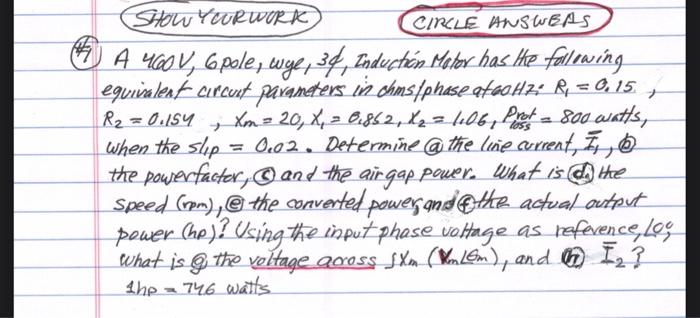 SHOW YOUR WORK
CIRCLE ANSWERS
#7 A 460V, 6 pole, wye, 3φ, Induction Motor has the following
equivalent circuit parameters in ohms/phase at 60 Hz: R₁ = 0.15 ,
R₂ = 0.154 , Xm = 20, X₁ = 0.852, X₂ = 1.06, Prot loss = 800 watts,
when the slip = 0.02. Determine ⓐ the line current, I̅₁, ⓑ
the powerfactor, ⓒ and the air gap power. What is ⓓ the
speed (rpm), ⓔ the converted power, and ⓕ the actual output
power (hp)? Using the input phase voltage as reference,
what is ⓖ the voltage across jXm (Vm∠θm), and ⓗ I̅₂?
1hp = 746 watts